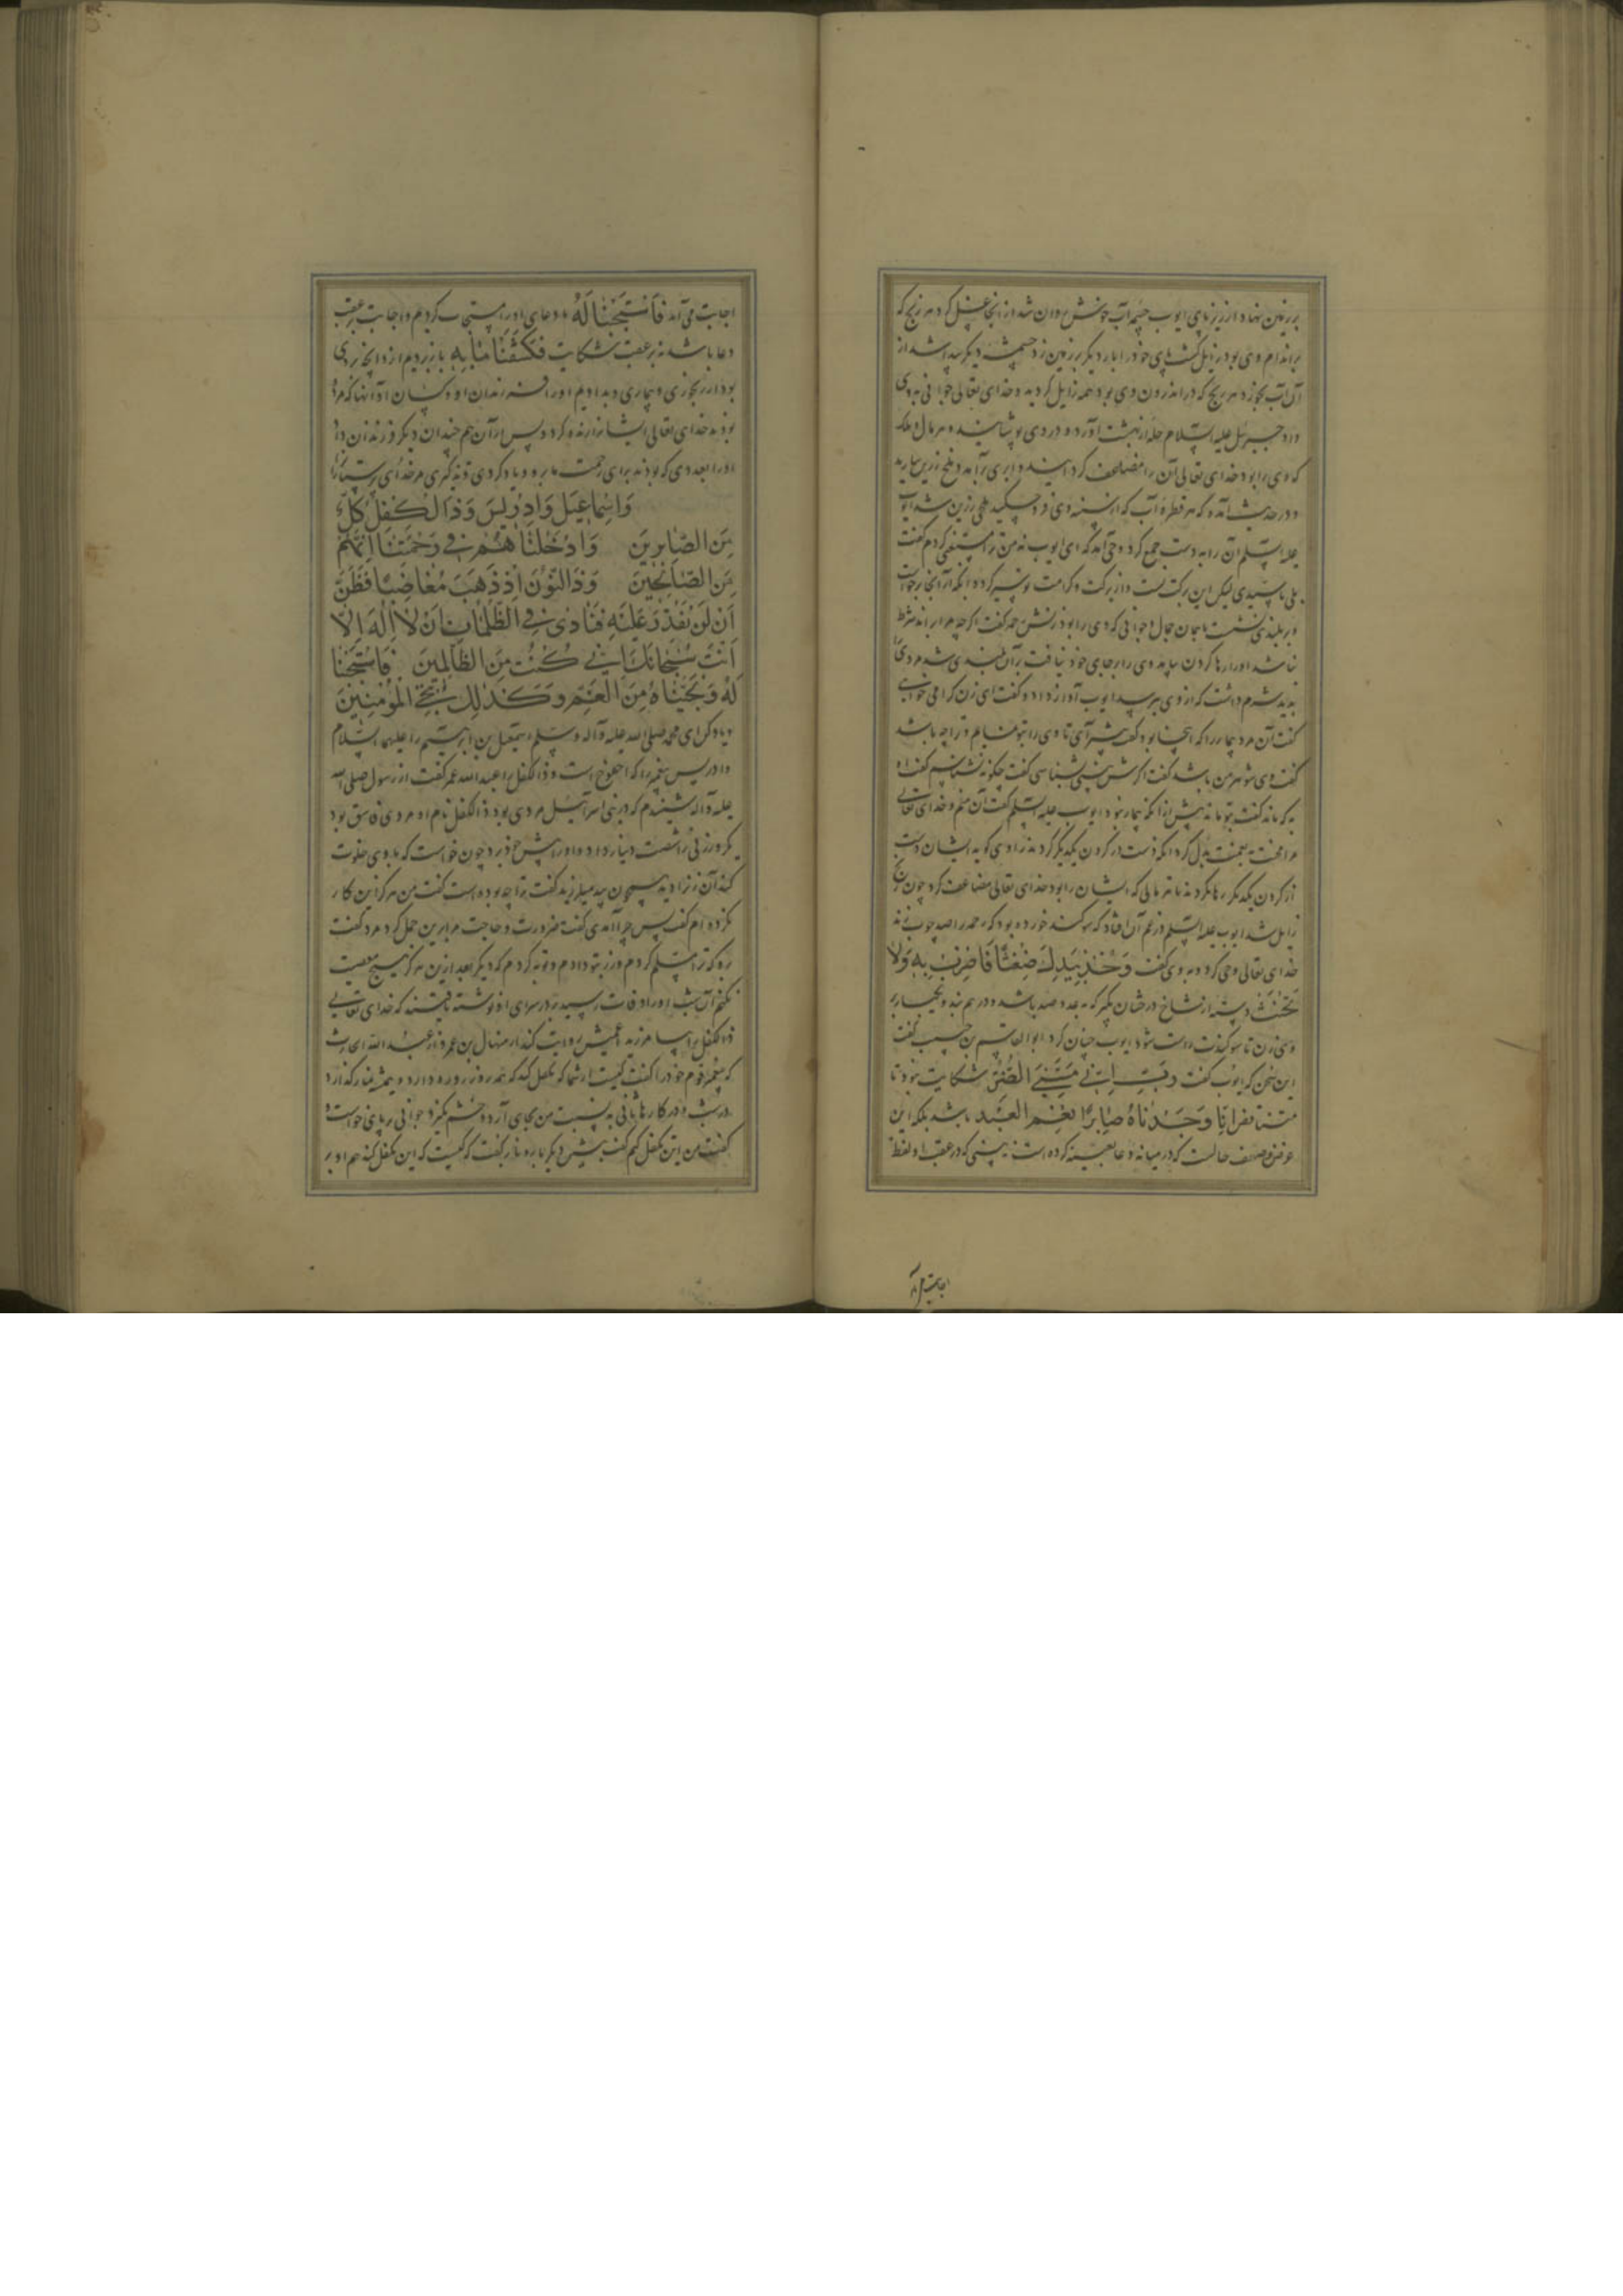 بر زمین نهاد از زیر پای ایوب چشمه آب خوش روان شد از آنجا غسل کرد هر رنج که
بر اندام وی بود زایل گشت پای خود را بار دیگر بر زمین زد چشمه دیگر پیدا شد از
آن آب بخورد هر رنج که در اندرون وی بود همه زایل گردید و خدای تعالی جوانی به وی
داد جبرئیل علیه السلام حله از بهشت آورد و در وی پوشانید و هر مال و ملک
که وی را بود خدای تعالی آن را مضاعف گردانید و ابری برآمد و ملخ زرین ببارید
و در حدیث آمده که هر قطره آب که از سینه وی فرو چکید ملخی زرین شد ایوب
علیه السلم آن را به دست جمع کرد وحی آمد که ای ایوب نه من ترا مستغنی کردم گفت
بلی یا سیدی لیکن این برکت تست و از برکت و کرامت تو سیر که بود آنگه از آنجا برخواست
و بر بلندی نشست با همان جمال و جوانی که وی را بود زنش رحمه گفت اگر چه مرا براند شرط
نباشد او را رها کردن بیامد وی را بر جای خود نیافت بر آن بلندی شد مردی را
بدید شرم داشت که از وی بپرسد ایوب آواز داد و گفت ای زن که را می خواهی
گفت آن مرد بیمار را که اینجا بود گفت پیشتر آی تا وی را بتو نمایم و ترا چه باشد
گفت وی شوهر من باشد گفت اگرش ببینی شناسی گفت چگونه نشناسم گفت او
به که ماند گفت بتو ماند پیش از آنکه بیمار نبود ایوب علیه السلم گفت آن منم و خدای تعالی
مرا محنت به نعمت بدل کرد آنگه دست در گردن یکدیگر کردند راوی گوید ایشان دست
از گردن یکدیگر رها نکردند تا هر مالی که ایشان را بود خدای تعالی مضاعف کرد چون رنج
زایل شد ایوب علیه السلم در غم آن افتاد که سوگند خورده بود که رحمه را صد چوب بزند
خدای تعالی وحی کرد و به وی گفت وَخُذْ بِيَدِكَ ضِغْثًا فَاضْرِبْ بِهِ وَلَا
تَحْنَثْ دسته از شاخ درختان بگیر که به عدد صد باشد و در هم بند و یکبار بر
وی زن تا سوگندت راست شود ایوب چنان کرد ابوالقاسم بن حبیب گفت
این سخن که ایوب گفت رَبِّ اِنِّي مَسَّنِيَ الضُّرُّ شکایت نبود تا
اِنَّا وَجَدْنَاهُ صَابِرًا نِعْمَ الْعَبْدُ باشد بلکه این
عرض و وصف حالست که در میانه دعا تعبیه کرده است نه بینی که در عقب او لفظ
اجابت می آ
اجابت می آمد فَاسْتَجَبْنَا لَهُ ما دعای او را مستجاب کردیم و اجابت عقب
دعا باشد نه بر عقب شکایت فَكَشَفْنَا مَا بِهِ باز بردیم از و آنچه بوی
بود از رنجوری و بیماری و بدادیم او را فرزندان او و کسان او آنها که مرده
بودند خدای تعالی ایشانرا زنده کرد و پس از آن هم چندان دیگر فرزندان داد
او را بعددی که بودند برای رحمت ما برو و یاد کردی و تذکیری مر خدای پرستانرا
وَاِسْمَاعِيلَ وَاِدْرِيسَ وَذَا الْكِفْلِ كُلٌّ
مِنَ الصَّابِرِينَ وَاَدْخَلْنَاهُمْ فِي رَحْمَتِنَا اِنَّهُمْ
مِنَ الصَّالِحِينَ وَذَا النُّونِ اِذْ ذَهَبَ مُغَاضِبًا فَظَنَّ
اَنْ لَنْ نَقْدِرَ عَلَيْهِ فَنَادٰى فِي الظُّلُمَاتِ اَنْ لَا اِلٰهَ اِلَّا
اَنْتَ سُبْحَانَكَ اِنِّي كُنْتُ مِنَ الظَّالِمِينَ فَاسْتَجَبْنَا
لَهُ وَنَجَّيْنَاهُ مِنَ الْغَمِّ وَكَذٰلِكَ نُنْجِي الْمُؤْمِنِينَ
و یاد کن ای محمد صلی الله علیه و آله و سلم اسمعیل بن ابرهیم را علیهما السلام
و ادریس پیغمبر را که اخنوخ است و ذالکفل را عبدالله عمر گفت از رسول صلی الله
علیه و آله شنیدم که در بنی اسرائیل مردی بود ذالکفل نام او مردی فاسق بود
یکروز زنی را شصت دینار داد و او را پیش خود برد چون خواست که با وی خلوت
کند آن زن را دید همچون بید میلرزید گفت ترا چه بوده است گفت من هرگز این کار
نکرده ام گفت پس چرا آمدی گفت ضرورت و حاجت مرا برین حمل کرد مرد گفت
برو که ترا مسلم کردم و زر بتو دادم و توبه کردم که دیگر بعد ازین هرگز هیچ معصیت
نکنم آن شب او را وفات رسید بر در سرای او نوشته یافتند که خدای تعالی
ذالکفل را بیامرزید اعمش روایت کند از منهال بن عمرو از عبدالله الحارث
که پیغمبر قوم خود را گفت کیست از شما که تکفل کند که همه روز روزه دارد و همه شب نماز گذارد
در شب و در کارها تأنی به نسبت من بجای آرد و خشم نگیرد جوانی بر پای خواست و
گفت من این تکفل کنم گفت بنشین دیگر باره باز گفت که کیست که این تکفل کند هم او بر